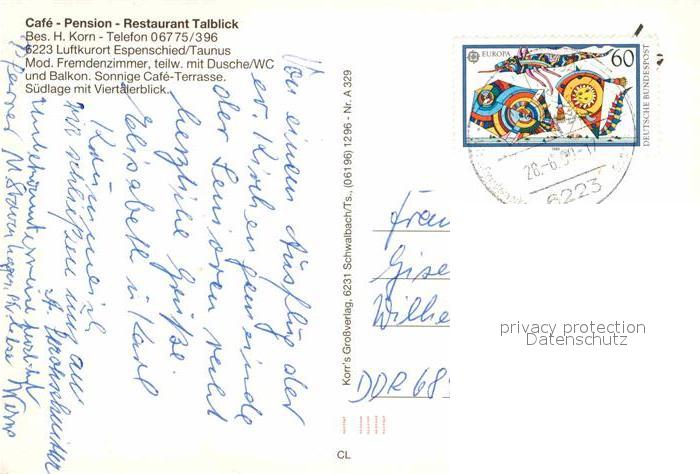 Café - Pension - Restaurant Talblick
Bes. H. Korn - Telefon 06775/396
6223 Luftkurort Espenschied/Taunus
Mod. Fremdenzimmer, teilw. mit Dusche/WC
und Balkon. Sonnige Café-Terrasse.
Südlage mit Viertälerblick.
Von einem Ausflug der
ev. Kirchengemeinde
der Senioren recht
herzliche Grüße
Elisabeth u. Karl
wir schließen uns an
Korn's Großverlag, 6231 Schwalbach/Ts., (06196) 1296 - Nr. A 329
EUROPA 60
DEUTSCHE BUNDESPOST
28.-6.90.-1
6223
Frau
Gise
Wilhe
DDR 689
privacy protection
Datenschutz
CL